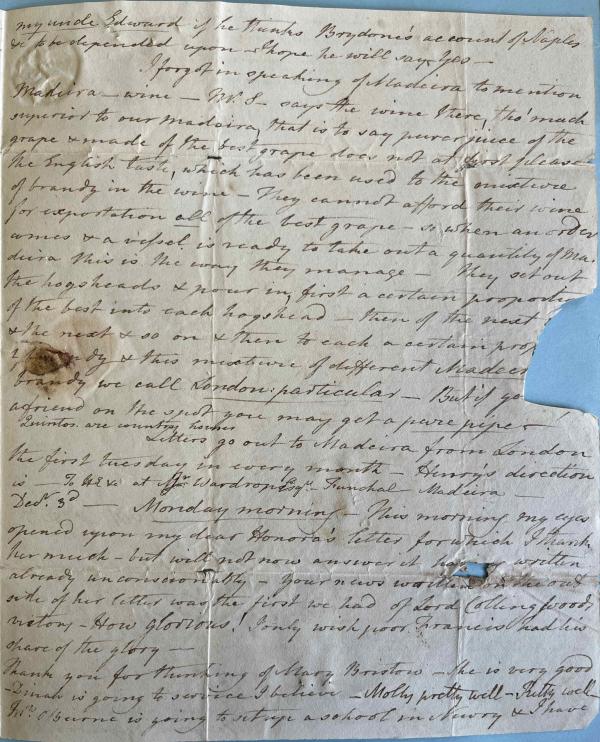 my uncle Edward if he thinks Brydone's account of Naples
is to be depended upon – I hope he will say Yes –
I forgot in speaking of Madeira to mention
Madeira – wine – Mr. S– says the wine there, tho' much
superior to our madeira, that is to say purer juice of the
grape & made of the best grape does not at first please
the English taste, which has been used to the mixture
of brandy in the wine – They cannot afford their wine
for exportation all of the best grape – so when an order
comes & a vessel is ready to take out a quantity of Ma-
deira this is the way they manage – They set out
the hogsheads & pour in, first a certain proportion
of the best into each hogshead – then of the next
& the next & so on & then to each a certain prop
& this mixture of different Madeir
brandy we call London: particular – But if yo
a friend on the spot you may get a pure pipe –
Quintas are country houses
Letters go out to Madeira from London
the first Tuesday in every month – Henry's direction
is – To H E at Wardrop Esqr. Funchal Madeira –
Decr. 3d – Monday morning – This morning my eyes
opened upon my dear Honora's letter for which I thank
her much – but will not now answer it having written
already unconscionably – Your news written on the out
side of her letter was the first we had of Lord Collingwood's
victory – How glorious! I only wish poor Francis had his
share of the glory –
Thank you for thinking of Mary Bristow – She is very good
– is going to service I believe – Molly pretty well – Kitty well –
Mrs. O'Beirne is going to set up a school in Newry & I have